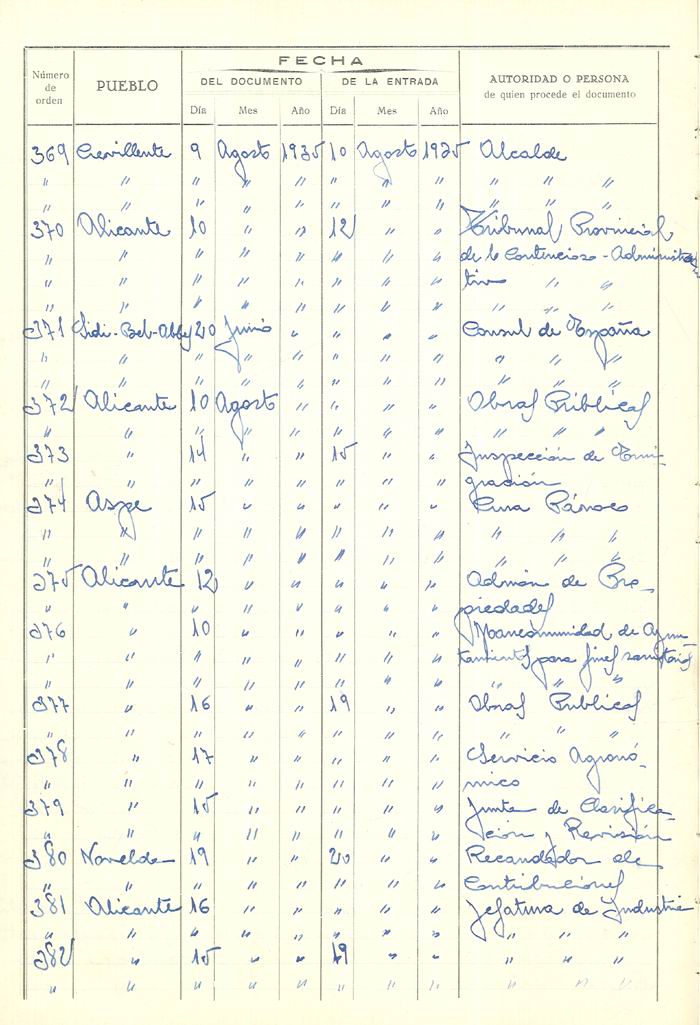 FECHA
Número de orden PUEBLO DEL DOCUMENTO DE LA ENTRADA AUTORIDAD O PERSONA de quien procede el documento
Día Mes Año Día Mes Año
369 Crevillente 9 Agosto 1935 10 Agosto 1935 Alcalde
" " " " " " " " " " "
" " " " " " " " " " "
370 Alicante 10 " " 12 " " Tribunal Provincial
" " " " " " " " de lo Contencioso-Administra
" " " " " " " " tivo " "
" " " " " " " " " "
371 Sidi-Bel-Abbes 20 Junio " " " " Consul de España
" " " " " " " " " " "
" " " " " " " " " " "
372 Alicante 10 Agosto " " " " Obras Públicas
" " " " " " " " " " "
373 " 14 " " 15 " " Inspección de Emi-
" " " " " " " " gración
374 Aspe 15 " " " " " Cura Párroco
" " " " " " " " " " "
" " " " " " " " " " "
375 Alicante 12 " " " " " Admón de Pro-
" " " " " " " " piedades
376 " 10 " " " " " Mancomunidad de Ayun-
" " " " " " " " tamientos para fines sanitarios
" " " " " " " " " " "
377 " 16 " " 19 " " Obras Publicas
" " " " " " " " " " "
378 " 17 " " " " " Servicio Agronó-
" " " " " " " " mico
379 " 15 " " " " " Junta de Clasifica-
" " " " " " " " ción y Revisión
380 Novelda 19 " " 20 " " Recaudador de
" " " " " " " " Contribuciones
381 Alicante 16 " " " " " Jefatura de Industria
" " " " " " " " " " "
382 " 15 " " 19 " " " " "
" " " " " " " " " " "